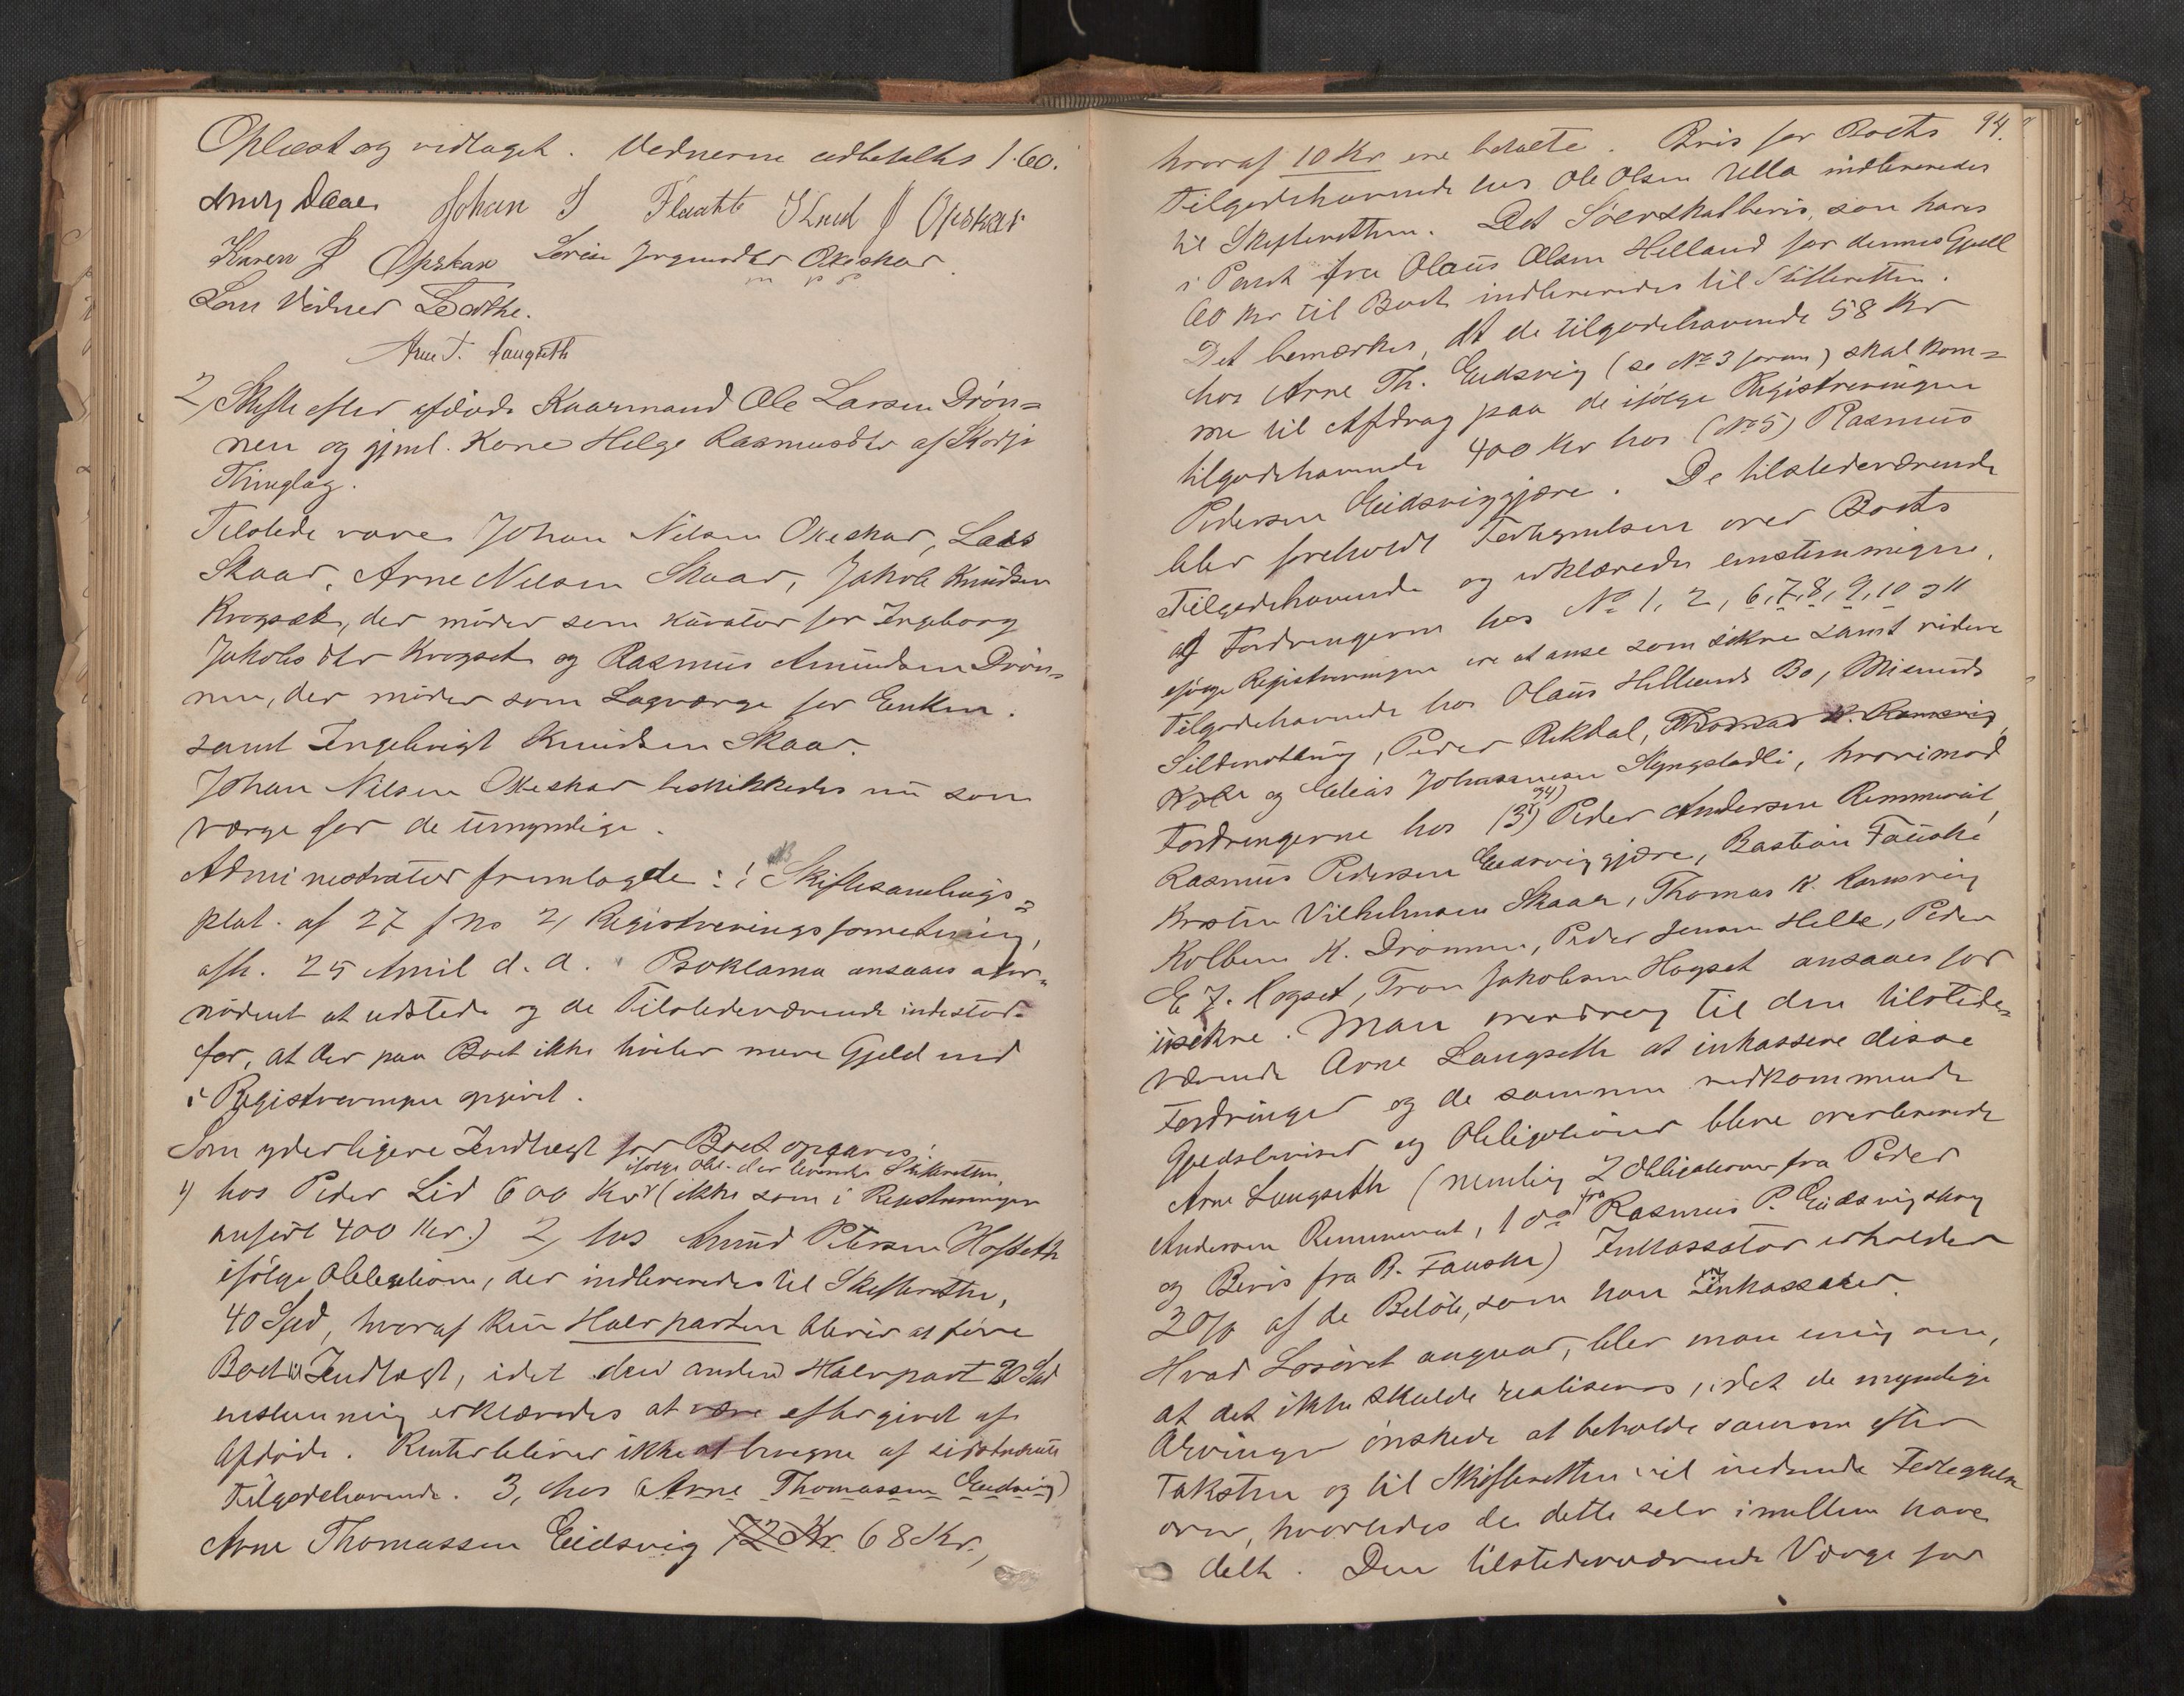 Oplæst og vedtaget. Vidnerne udbetaltes 1.60.
Daae Johan J Flaathe Knud J Opskar
Karen J Opskar Okeskar
Som Vidner
Arne T. Langseth
2, Skifte efter afdøde Kaarmand Ole Larsen Drøn=
nen og gjenl. Kone Helge Rasmusdtr af Skodje
Thinglag.
Tilstede vare Johan Nilsen Okeskar, Lars
Skaar, Arne Nilsen Skaar, Jakob Knudsen
Krogsæt, der møder som Kurator for Ingeborg
Jakobsdtr Krogset og Rasmus Amundsen Drøn=
nen, der møder som Lagværge for Enken.
samt Ingebrigt Knudsen Skaar.
Johan Nilsen Okeskar beskikkedes nu som
værge for de umyndige.
Administrator fremlagde: 1 Skiftesamlings=
plak. af 27 f M 2, Registreringsforretning,
afh. 25 April d. A. Proklama ansaaes ufor=
nødent at udstede og de Tilstedeværende indestod
for, at der paa Boet ikke hviler mere Gjeld end
i Registreringen opgivet.
Som yderligere Indtægt for Boet opgaves:
ifølge Obl. der leveredes Skifteretten,
1) hos Peder Lid 600 Kr (ikke som i Registreringen
anført 400 Kr.) 2, hos Amund Petersen Hofseth
ifølge Obligation, der indleveredes til Skifteretten,
40 Spd, hvoraf kun Halvparten bliver at føre
Boet til Indtægt, idet den anden Halvpart 20 Spd
enstemmig erklæredes at være eftergivet af
Afdøde. Renter bliver ikke at beregne af sidstnævnte
Tilgodehavende. 3, hos Arne Thomassen Eidsvig)
Arne Thomassen Eidsvig 72 Kr. 68 Kr.,
94.
hvoraf 10 Kr ere betalte. Bevis for Boets
Tilgodehavende hos Ole Olsen Ulla indleveredes
til Skifteretten. Det som haves
i Pant fra Olaus Olsen Helland for dennes Gjeld
60 Kr til Boet indleveredes til Skifteretten.
Det bemærkes, at de tilgodehavende 58 Kr
hos Arne Th. Eidsvig (se No 3 foran) skal kom=
me til Afdrag paa de ifølge Registreringen
tilgodehavende 400 Kr hos (No 5) Rasmus
Pedersen Eidsviggjære. De tilstedeværende
blev foreholdt Fortegnelsen over Boets
Tilgodehavende og erklærede enstemmigen,
af Fordringerne hos No 1, 2, 6, 7, 8, 9, 10 og 11
ifølge Registreringen ere at anse som sikre samt videre
Tilgodehavende hos Olaus Hellands Bo, Misunds
Sildenotlaug, Peder Rekdal, Thomas K. Ramsvig
og Elias Johannesen Slyngstadli, hvorimod
94)
Fordringerne hos (3) Peder Andersen Remmereit,
Rasmus Pedersen Eidsviggjære, Bastian Fauske
Vilhelmsen Skaar, Thomas K. Ramsvig
Kolben K. Drønnen, Peder Jensen Helle, Peder
E J. Hogset, Tron Jakobsen Hogset ansaaes for
usikre. Man overdrog til den tilstede=
værende Arne Langseth at inkassere disse
Fordringer og de samme vedkommende
Gjeldsbeviser og Obligationer bleve overleverede
Arne Langseth (nemlig 2 Obligationer fra Peder
Andersen Remmereit, 1 do fra Rasmus P. Eidsvig
og Bevis fra B. Fauske) Inkassator erholder
3 0/0 af de Beløb, som han inkasserer.
Hvad Løsøret angaar, blev man enig om,
at det ikke skulde realiseres, idet de myndige
Arvinger ønskede at beholde samme efter
Taksten og til Skifteretten vil indsende Fortegnelse
over, hvorledes de dette selv imellem have
delt. Den tilstedeværende Værge for